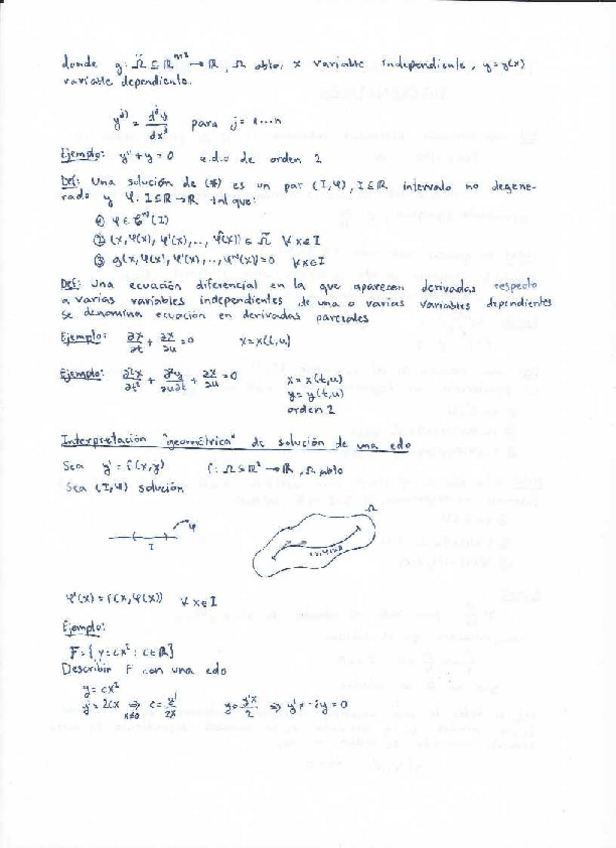 donde g: Ω̃ ⊆ ℝⁿ⁺² → ℝ, Ω̃ abto, x variable independiente, y=y(x)
variable dependiente.
y^(j) = d^j y / dx^j para j=1...n
Ejemplo: y''+y=0 e.d.o de orden 2
Def: Una solución de (*) es un par (I,φ), I⊆ℝ intervalo no degene-
rado y φ: I⊆ℝ→ℝ tal que:
① φ ∈ C^n)(I)
② (x,φ(x),φ'(x),..,φ^n)(x)) ∈ Ω̃ ∀x∈I
③ g(x,φ(x),φ'(x),..,φ^n)(x))=0 ∀x∈I
Def: Una ecuación diferencial en la que aparecen derivadas respecto
a varias variables independientes de una o varias variables dependientes
se denomina ecuación en derivadas parciales
Ejemplo: ∂x/∂t + ∂x/∂u = 0 x=x(t,u)
Ejemplo: ∂²x/∂t² + ∂²y/∂u∂t + ∂x/∂u = 0 x=x(t,u)
y=y(t,u)
orden 2
Interpretación "geométrica" de solución de una edo
Sea y'=f(x,y) f: Ω⊆ℝ²→ℝ, Ω abto
Sea (I,φ) solución
φ Ω
I (x,φ(x))
φ'(x)=f(x,φ(x)) ∀x∈I
Ejemplo:
F={y=cx² : c∈ℝ}
Describir F con una edo
y=cx²
y'=2cx ⇒ x≠0 c=y'/2x y=y'x/2 ⇒ y'x-2y=0